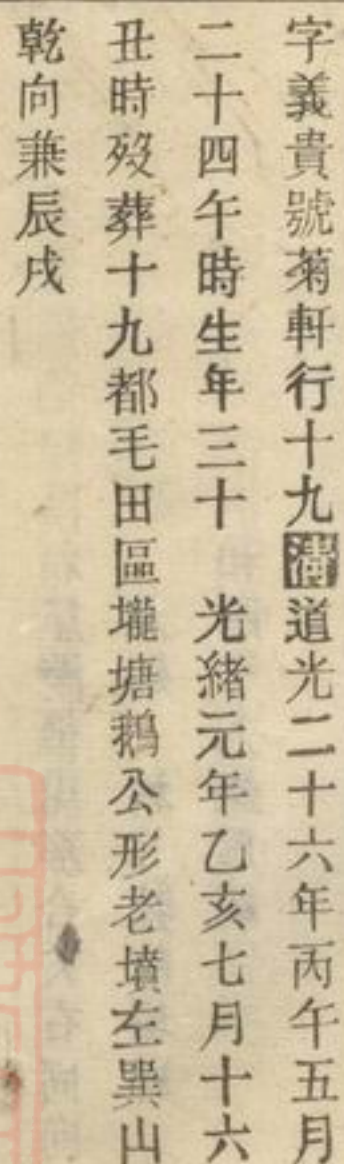 字義貴號菊軒行十九清道光二十六年丙午五月
二十四午時生年三十　光緒元年乙亥七月十六
丑時歿葬十九都毛田區壠塘鵝公形老墳左巽山
乾向兼辰戌